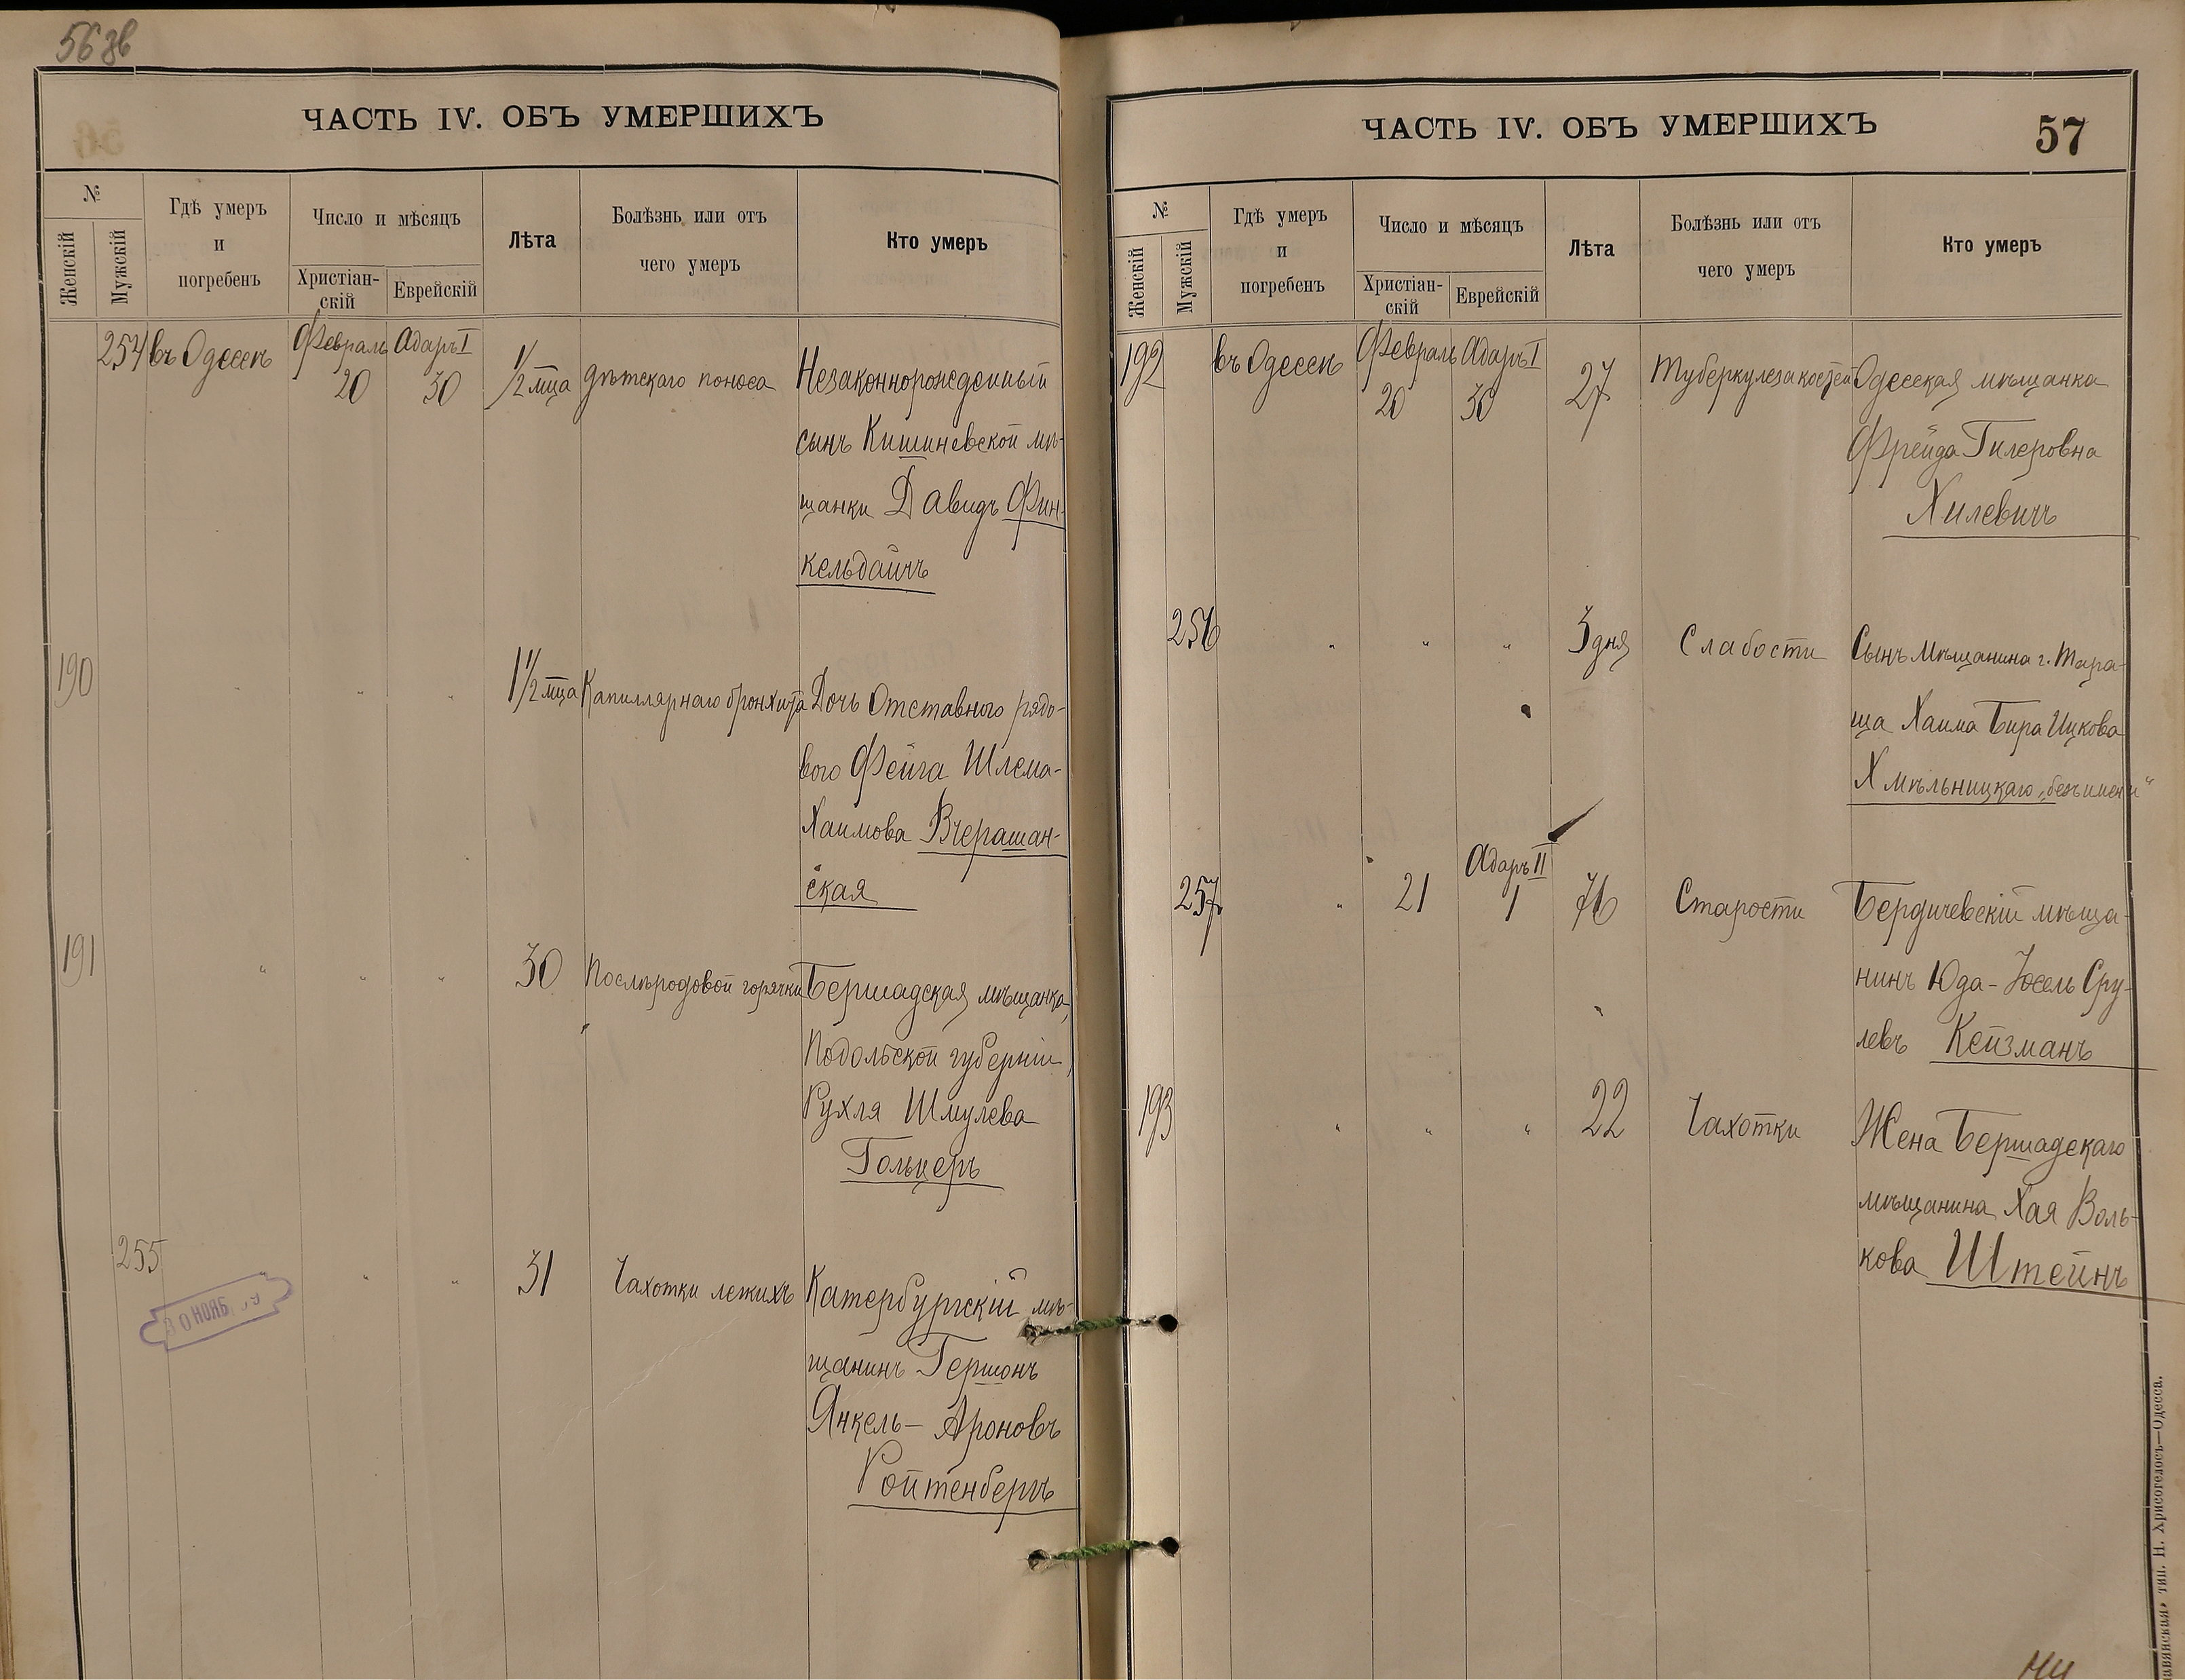 56 зв
ЧАСТЬ IV. ОБЪ УМЕРШИХЪ
№
Женскій
Мужскій
Гдѣ умеръ
и
погребенъ
Число и мѣсяцъ
Христіан-
скій
Еврейскій
Лѣта
Болѣзнь или отъ
чего умеръ
Кто умеръ
254 въ Одессѣ Февраль 20 Адаръ I 30 1/2 мца дѣтскаго поноса Незаконнорожденный
сынъ Кишиневской мѣ-
щанки Давидъ Фин-
кельдайчъ
190 " " " 1 1/2 мца Капиллярнаго бронхита Дочь Отставного рядо-
вого Фейга Шлема-
Хаимова Вчерашан-
ская
191 " " " 30 Послѣродовой горячки Бершадская мѣщанка,
Подольской губерніи,
Рухля Шмулева
Гольцеръ
255 " " " 31 Чахотки легкихъ Катербургскій мѣ-
щанинъ Гершонъ
Янкель-Ароновъ
Ройтенбергъ
30 НОЯБ
ЧАСТЬ IV. ОБЪ УМЕРШИХЪ
57
№
Женскій
Мужскій
Гдѣ умеръ
и
погребенъ
Число и мѣсяцъ
Христіан-
скій
Еврейскій
Лѣта
Болѣзнь или отъ
чего умеръ
Кто умеръ
192 въ Одессѣ Февраль 20 Адаръ I 30 27 Туберкулеза костей Одесская мѣщанка
Фрейда Гилеровна
Хилевичъ
256 " " " 3 дня Слабости Сынъ мѣщанина г. Тара-
ща Хаима Бира Ицкова
Хмѣльницкаго „безъ имени“
257 " 21 Адаръ II 1 76 Старости Бердичевскій мѣща-
нинъ Юда-Іосель Сру-
левъ Кейзманъ
193 " " " 22 Чахотки Жена Бершадскаго
мѣщанина Хая Воль-
кова Штейнъ
тип. Н. Хрисогелосъ—Одесса.